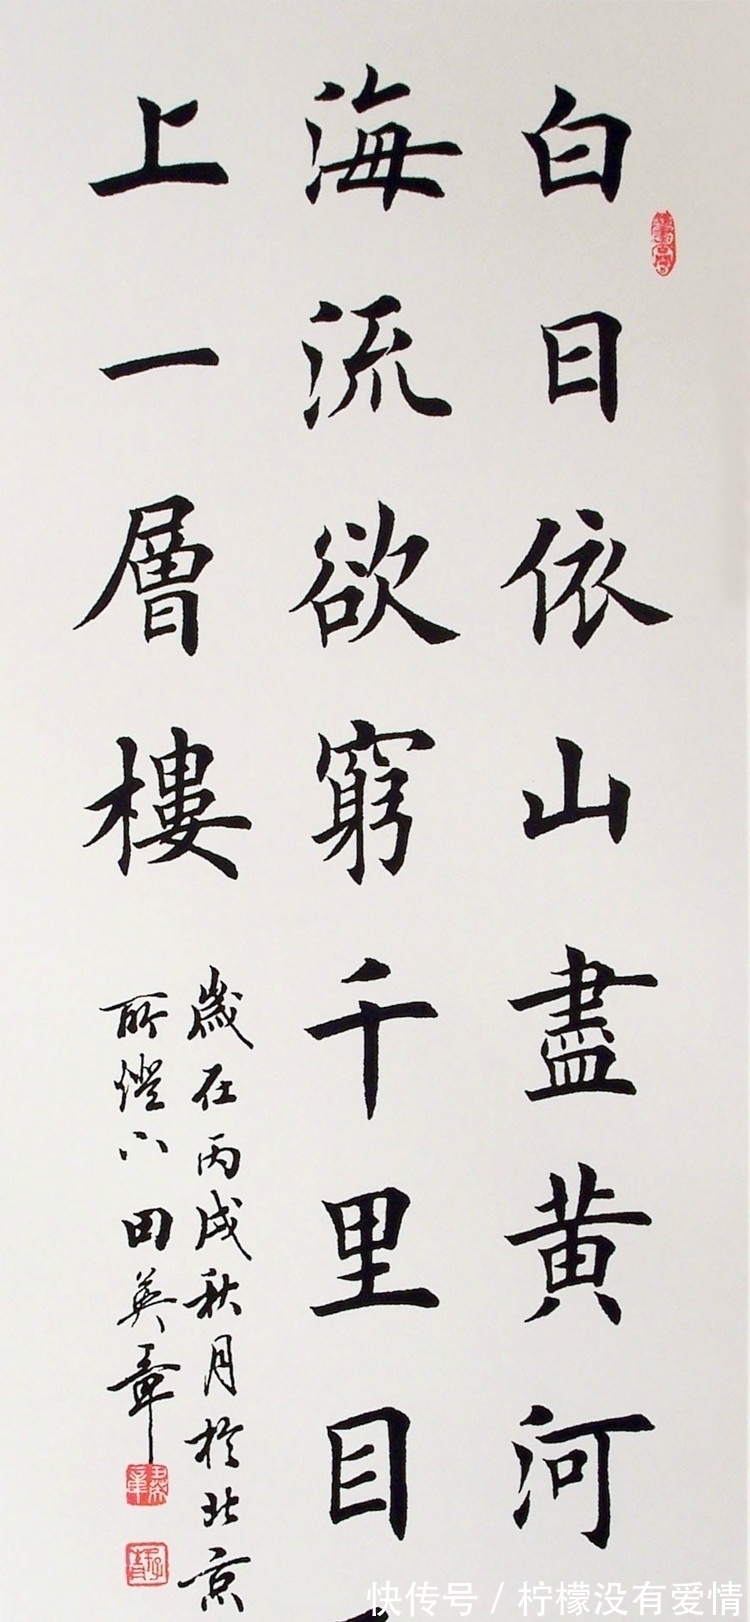 白日依山盡黄河
海流欲窮千里目
上一層樓
歲在丙戌秋月於北京
所燈下田英章
快传号 / 柠檬没有爱情